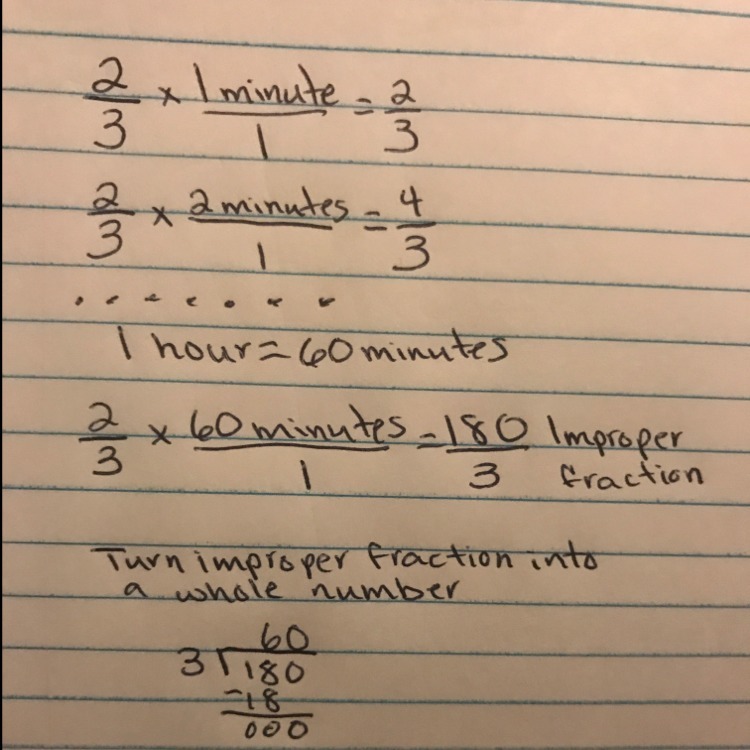 2/3 × 1 minute/1 = 2/3
2/3 × 2 minutes/1 = 4/3
. . . . . . .
1 hour = 60 minutes
2/3 × 60 minutes/1 = 180/3 Improper fraction
Turn improper fraction into
a whole number
60
3 √180
-18
000